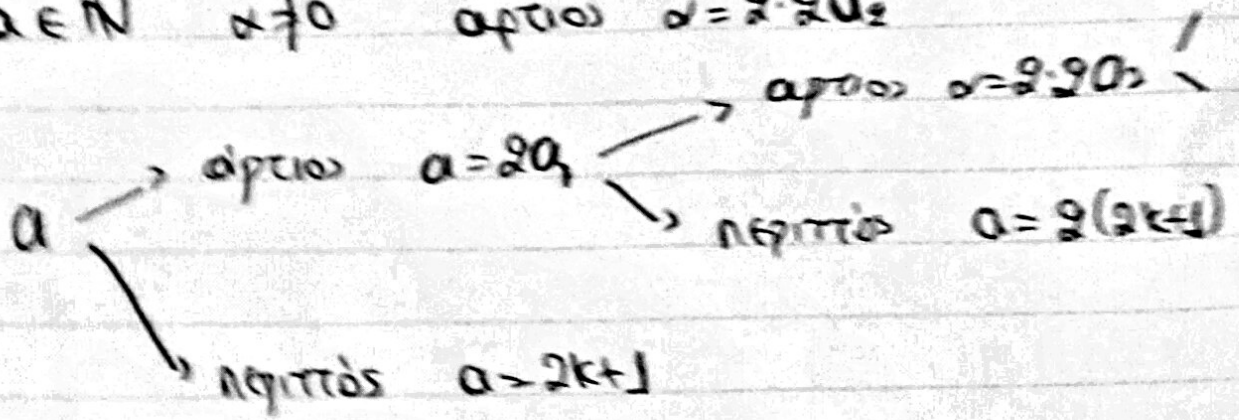 α ∈ ℕ α≠0 αρτιος α = 2·2α₂
αρτιος α=2·2α₂
άρτιος α=2α₁
α
περιττός α=2(2κ+1)
περιττός α=2κ+1